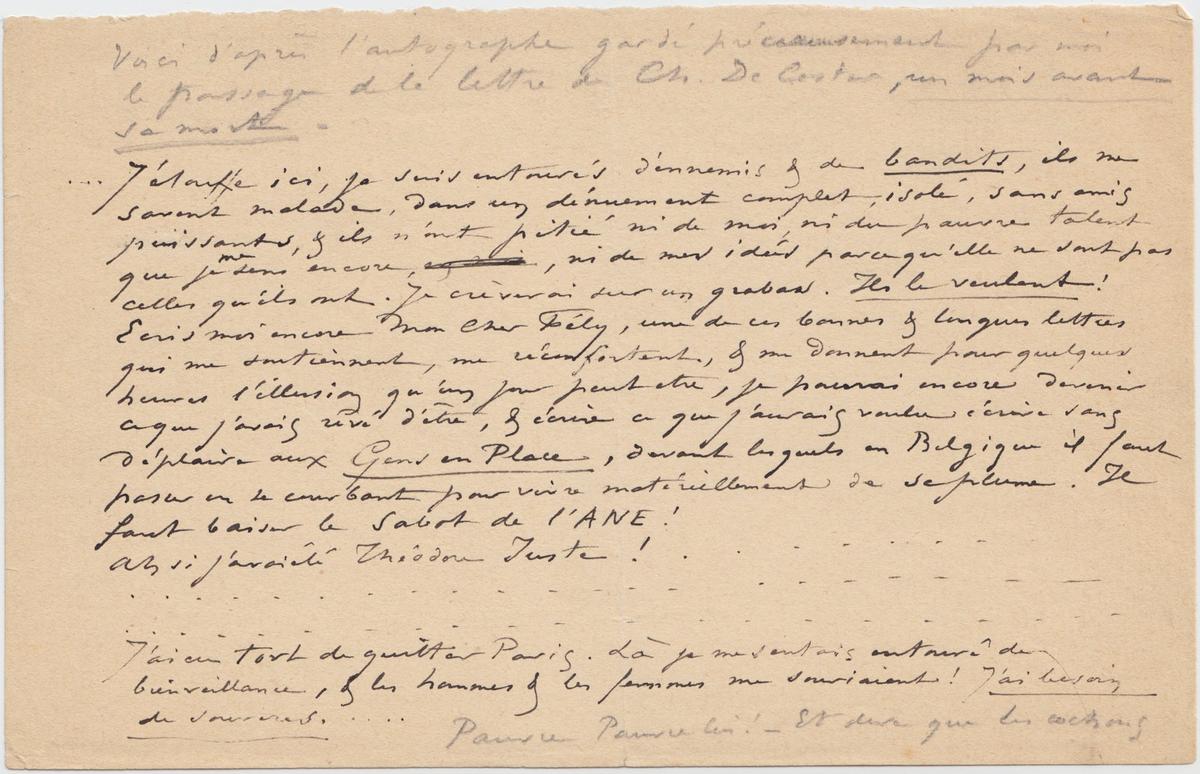 Voici d'après l'autographe gardé précieusement par moi
le passage de la lettre de Ch. De Coster, un mois avant
sa mort -
... J'étouffe ici, je suis entourés d'ennemis & de bandits, ils me
savent malade, dans un dénuement complet, isolé, sans amis
puissants, & ils n'ont pitié ni de moi, ni du pauvre talent
que je me sens encore, , ni de mes idées parcequ'elle ne sont pas
celles qu'ils ont. Je crèverai sur un grabat. Ils le veulent !
Ecris moi encore Mon Cher Fély, une de ces bonnes & longues lettres
qui me soutiennent, me réconfortent, & me donnent pour quelques
heures l'illusion qu'un jour peut etre, je pourrai encore devenir
ce que j'avais rêvé d'être, & écrire ce que j'aurais voulu écrire sans
déplaire aux Gens en Place, devant lesquels en Belgique il faut
passer en se courbant pour vivre matériellement de sa plume. Il
faut baiser le Sabot de l'ANE !
Ah si j'avais été Théodore Juste ! . . - . - . - . -
. - . - . - . - . - . - . -
J'ai eu tort de quitter Paris. Là je me sentais entouré de
bienveillance, & les hommes & les femmes me souriaient ! J'ai besoin
de sourires. . . . .
Pauvre Pauvre lui ! - Et dire que les cochons